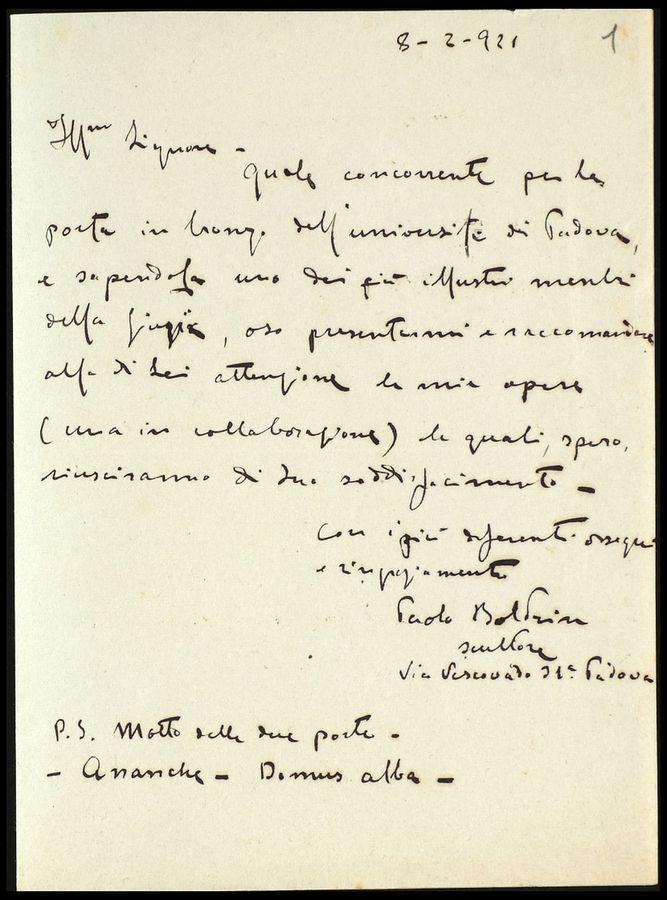 8-2-921
1
Ill<sup>mo</sup> Signore -
quale concorrente per la
porta in bronzo dell'università di Padova,
e sapendola uno dei più illustri membri
della giuria, oso presentarmi e raccomandare
alla di Lei attenzione le mie opere
(una in collaborazione) le quali, spero,
riusciranno di Suo soddisfacimento -
Con i più deferenti ossequi
e ringraziamenti
Paolo Boldrin
scultore
Via Vescovado Padova
P.S. Motto delle due porte -
- Ananche - Domus alba -